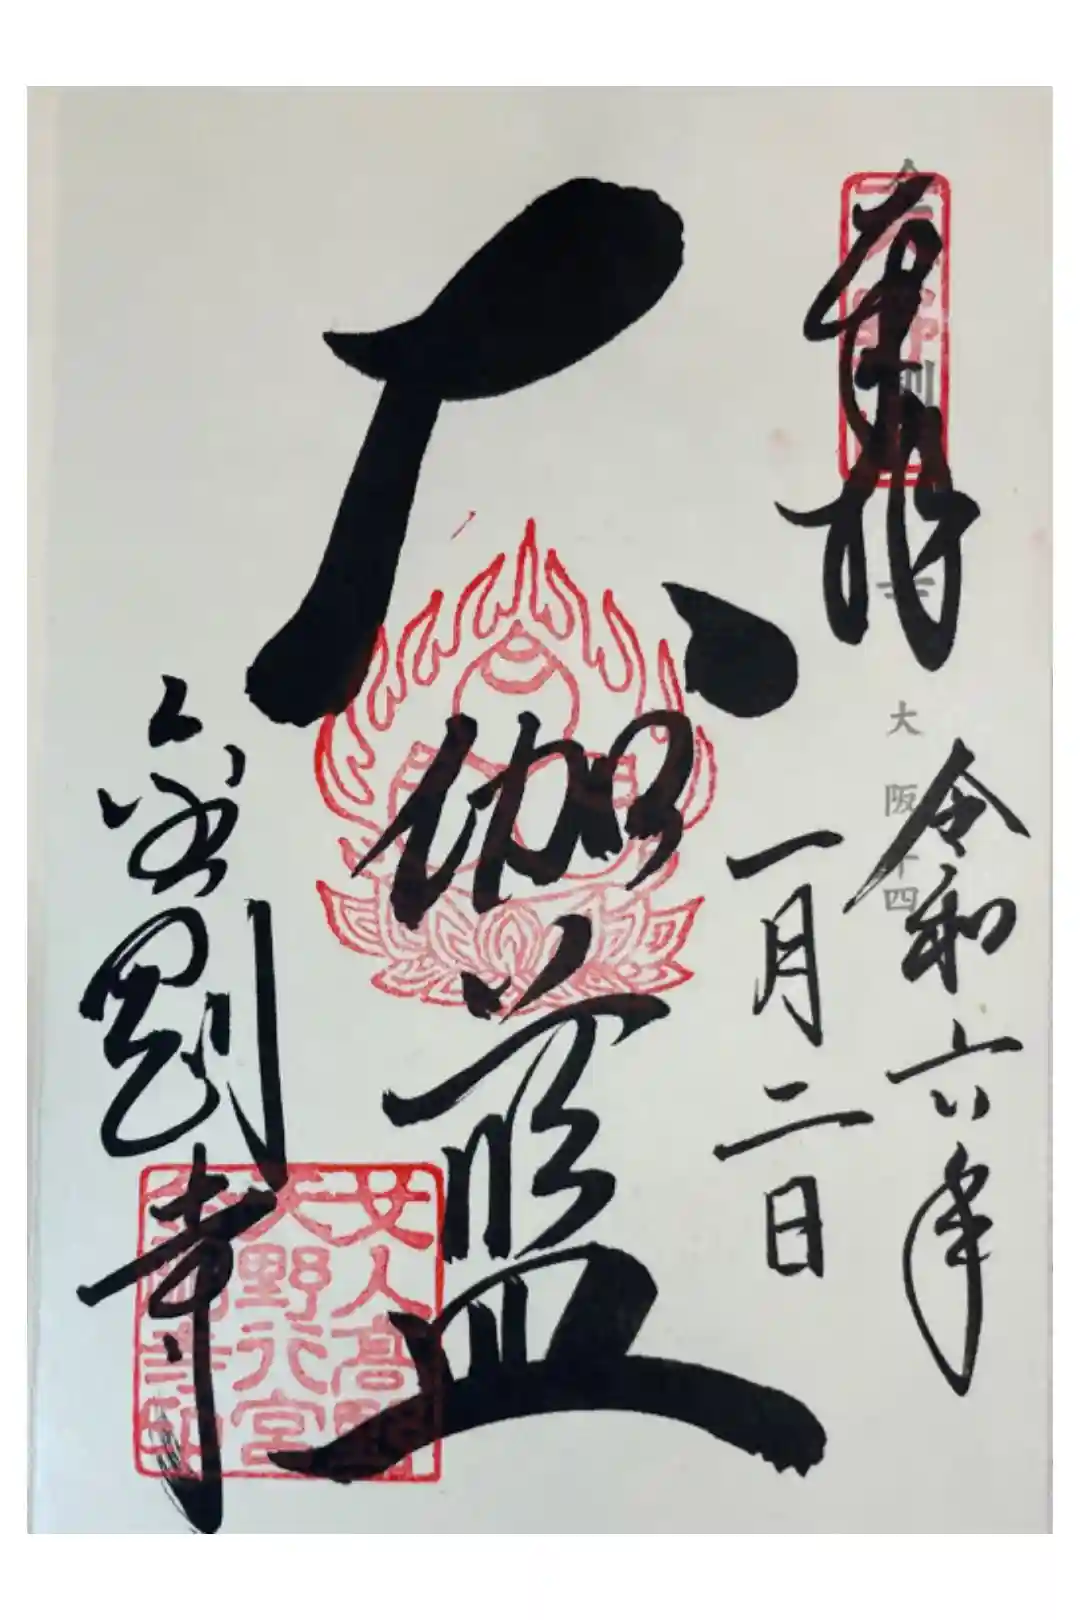 奉拝
大阪十四
令和六年
一月二日
伽藍
女人高野
天野行宮
金剛寺印
金剛寺